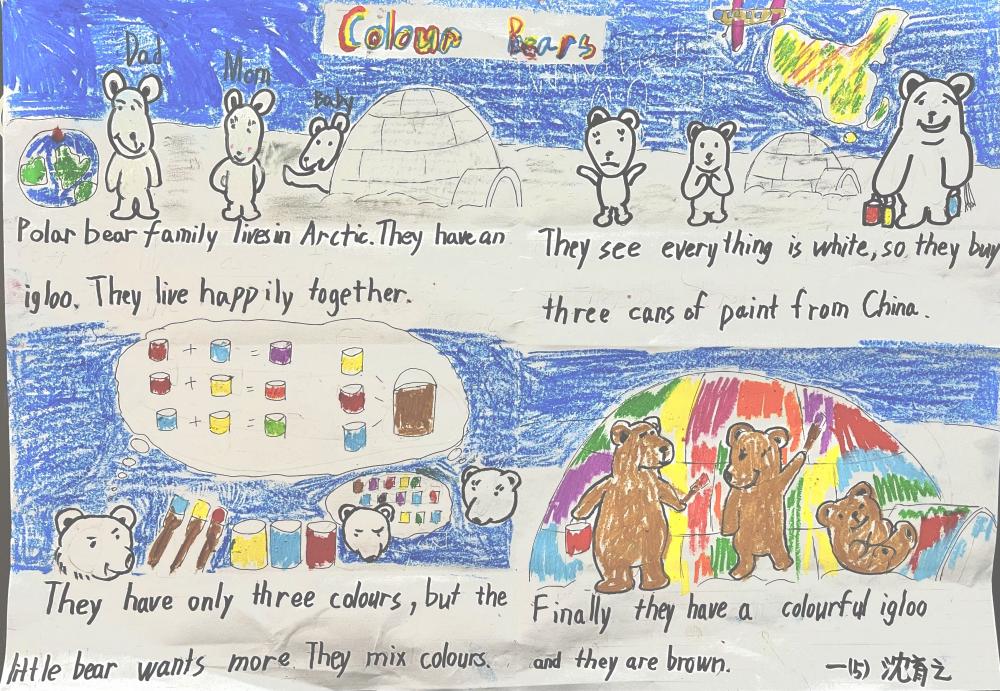 Colour Bears
Dad
Mom
Baby
Polar bear family lives in Arctic. They have an
igloo. They live happily together.
They see everything is white, so they buy
three cans of paint from China.
+ =
+ =
+ =
They have only three colours, but the
little bear wants more. They mix colours.
Finally they have a colourful igloo
and they are brown.
一(5) 沈育之